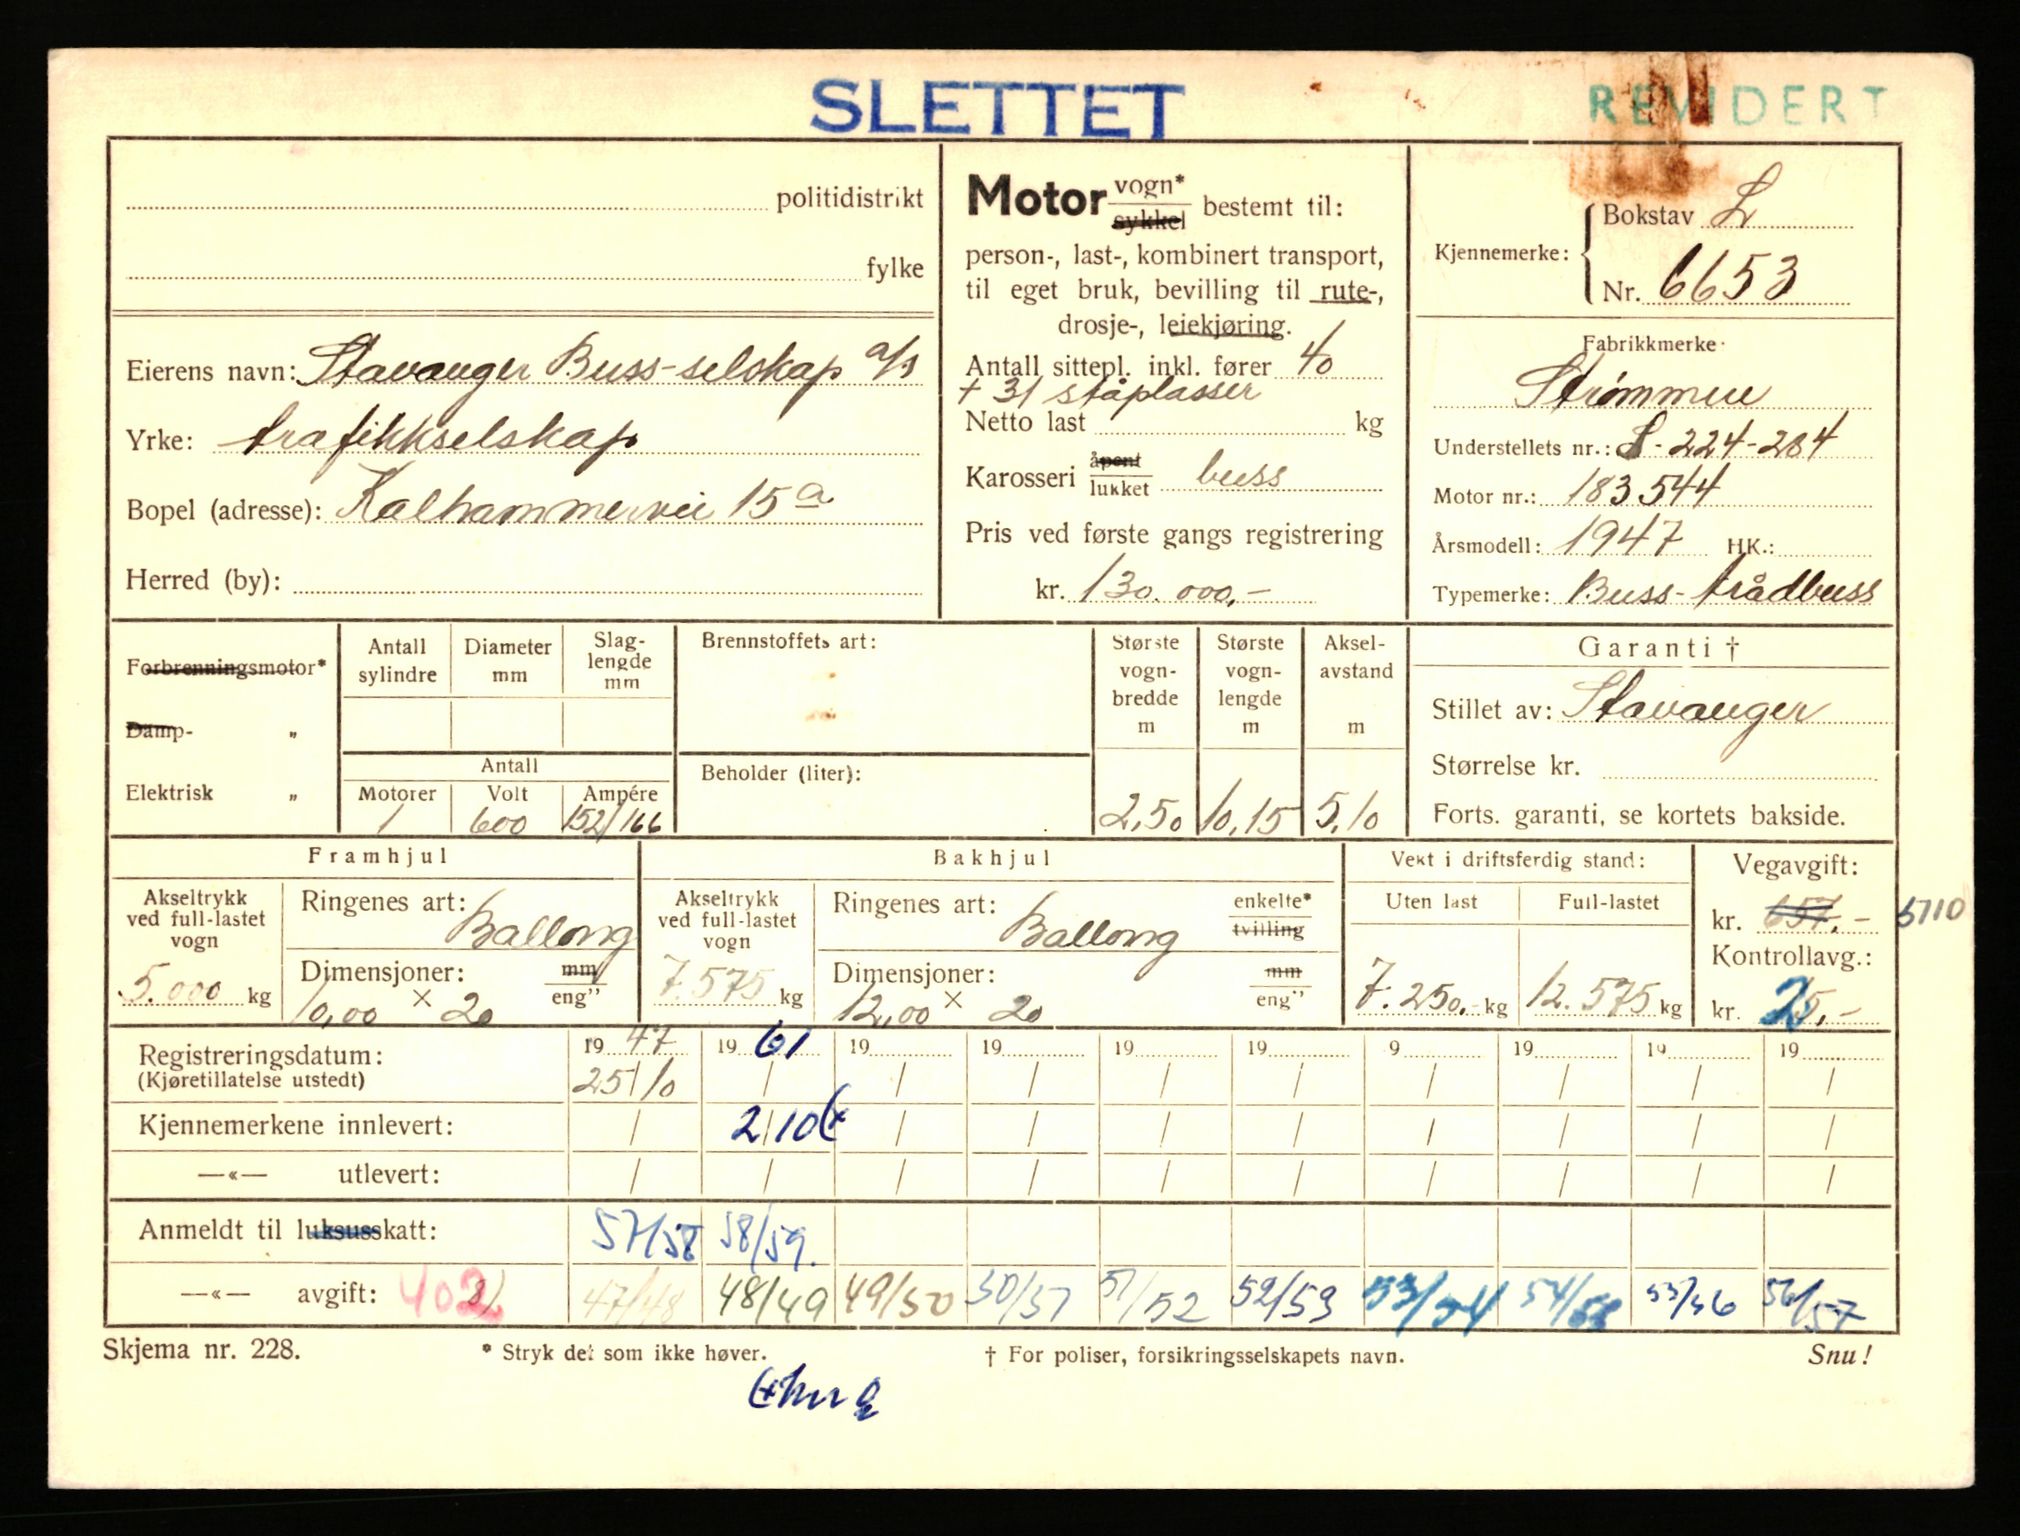 SLETTET
REVIDERT
politidistrikt
fylke
Eierens navn: Stavanger Buss-selskap a/s
Yrke: trafikkselskap
Bopel (adresse): Kalhammervei 15 a
Herred (by):
Motor vogn* sykkel bestemt til:
person-, last-, kombinert transport,
til eget bruk, bevilling til rute-,
drosje-, leiekjøring.
Antall sittepl. inkl. fører 40
+ 31 ståplasser
Netto last kg
Karosseri åpent lukket buss
Pris ved første gangs registrering
kr. 130.000,-
Kjennemerke: Bokstav L
Nr. 6653
Fabrikkmerke
Strømmen
Understellets nr.: S-224-284
Motor nr.: 183544
Årsmodell: 1947 HK.:
Typemerke: Buss-trådbuss
Forbrenningsmotor*
Damp- "
Elektrisk "
Antall sylindre
Diameter mm
Slaglengde mm
Antall
Motorer Volt Ampére
1 600 152/166
Brennstoffets art:
Beholder (liter):
Største vognbredde m
2,50
Største vognlengde m
10,15
Akselavstand m
5,10
Garanti †
Stillet av: Stavanger
Størrelse kr.
Forts. garanti, se kortets bakside.
Framhjul
Akseltrykk ved full-lastet vogn
5.000 kg
Ringenes art: Ballong
Dimensjoner: mm eng"
10,00 × 20
Bakhjul
Akseltrykk ved full-lastet vogn
7.575 kg
Ringenes art: Ballong enkelte* tvilling
Dimensjoner: mm eng"
12,00 × 20
Vekt i driftsferdig stand:
Uten last Full-lastet
7.250,- kg 12.575 kg
Vegavgift:
kr. 657,- 5710
Kontrollavg.:
kr. 25,-
Registreringsdatum: 19 47 19 61 19 19 19 19 9 19 19 19
(Kjøretillatelse utstedt) 25/10 / / / / / / / / /
Kjennemerkene innlevert: / 2/10 / / / / / / / /
—«— utlevert: / / / / / / / / / /
Anmeldt til luksusskatt: 57/58 58/59.
—«— avgift: 402 47/48 48/49 49/50 50/51 51/52 52/53 53/54 54/55 55/56 56/57
Skjema nr. 228. * Stryk det som ikke høver. † For poliser, forsikringsselskapets navn. Snu!